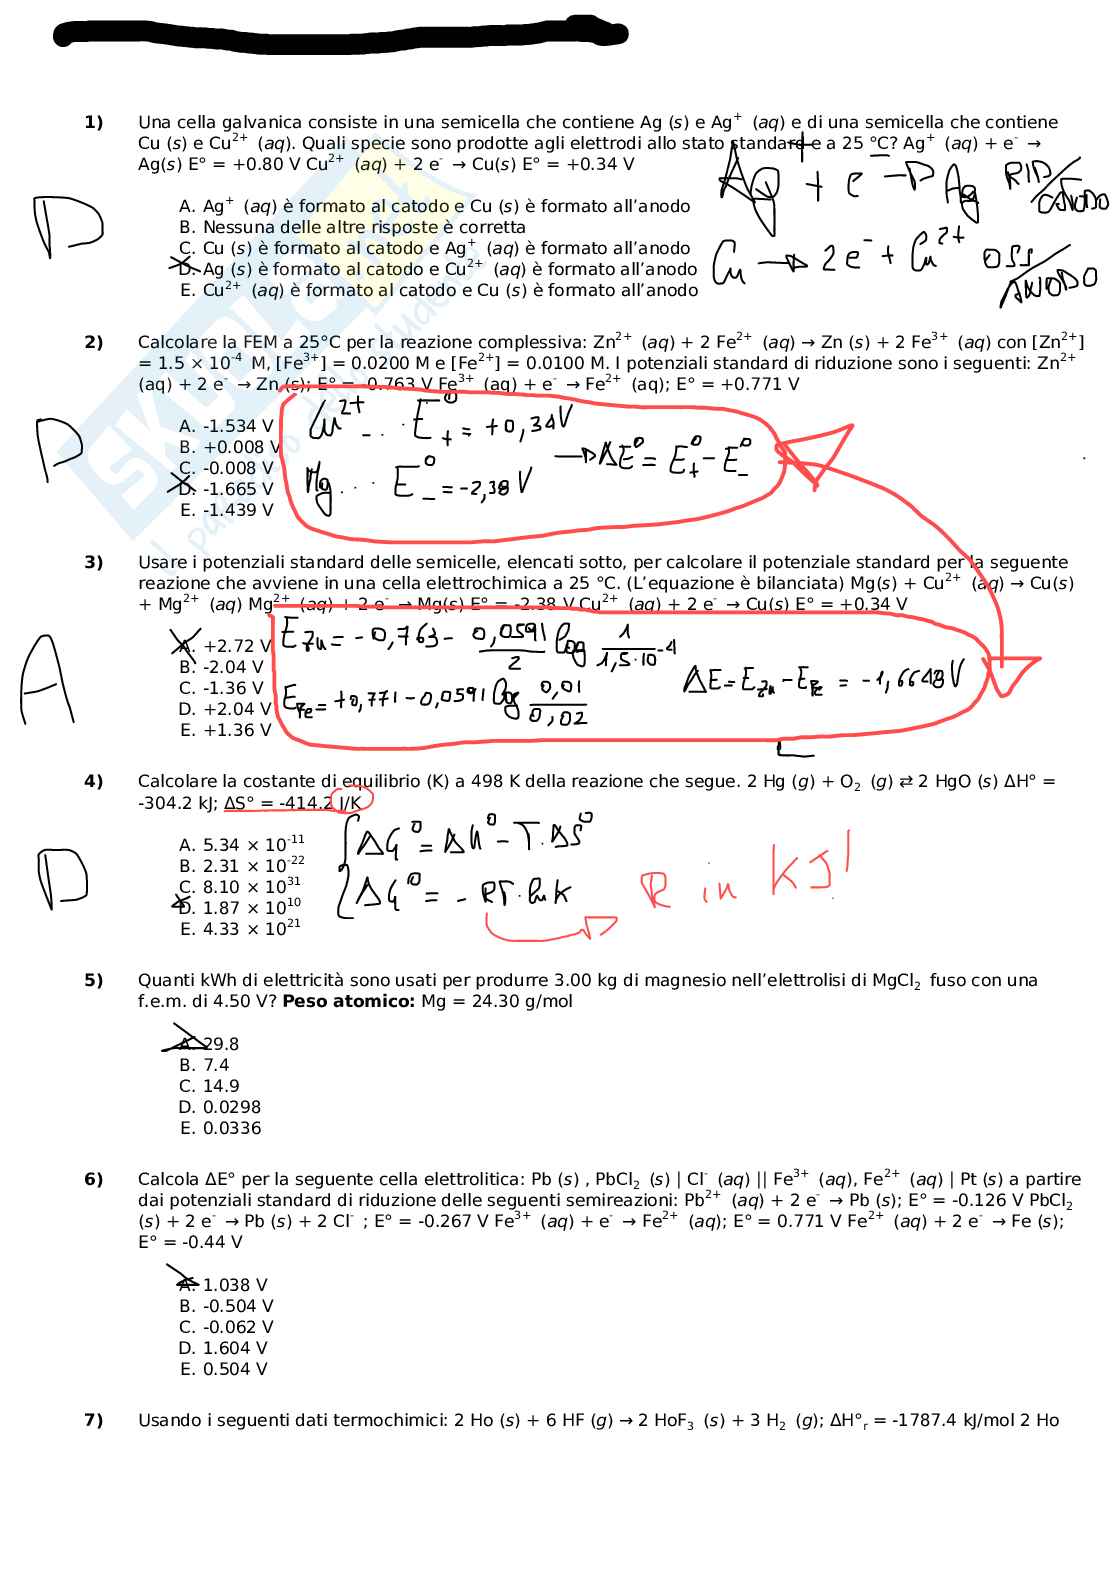 1) Una cella galvanica consiste in una semicella che contiene Ag (s) e Ag⁺ (aq) e di una semicella che contiene
Cu (s) e Cu²⁺ (aq). Quali specie sono prodotte agli elettrodi allo stato standard e a 25 °C? Ag⁺ (aq) + e⁻ →
Ag(s) E° = +0.80 V Cu²⁺ (aq) + 2 e⁻ → Cu(s) E° = +0.34 V
Ag⁺ + e⁻ → Ag RID/CATODO
Cu → 2e⁻ + Cu²⁺ OSS/ANODO
D
A. Ag⁺ (aq) è formato al catodo e Cu (s) è formato all’anodo
B. Nessuna delle altre risposte è corretta
C. Cu (s) è formato al catodo e Ag⁺ (aq) è formato all’anodo
D. Ag (s) è formato al catodo e Cu²⁺ (aq) è formato all’anodo
E. Cu²⁺ (aq) è formato al catodo e Cu (s) è formato all’anodo
2) Calcolare la FEM a 25°C per la reazione complessiva: Zn²⁺ (aq) + 2 Fe²⁺ (aq) → Zn (s) + 2 Fe³⁺ (aq) con [Zn²⁺]
= 1.5 × 10⁻⁴ M, [Fe³⁺] = 0.0200 M e [Fe²⁺] = 0.0100 M. I potenziali standard di riduzione sono i seguenti: Zn²⁺
(aq) + 2 e⁻ → Zn (s); E° = -0.763 V Fe³⁺ (aq) + e⁻ → Fe²⁺ (aq); E° = +0.771 V
D
A. -1.534 V
B. +0.008 V
C. -0.008 V
D. -1.665 V
E. -1.439 V
Cu²⁺ - . . E⁰₊ = +0,34V
Mg . . . E⁰₋ = -2,38 V
→ ΔE⁰ = E⁰₊ - E⁰₋
3) Usare i potenziali standard delle semicelle, elencati sotto, per calcolare il potenziale standard per la seguente
reazione che avviene in una cella elettrochimica a 25 °C. (L’equazione è bilanciata) Mg(s) + Cu²⁺ (aq) → Cu(s)
+ Mg²⁺ (aq) Mg²⁺ (aq) + 2 e⁻ → Mg(s) E° = -2.38 V Cu²⁺ (aq) + 2 e⁻ → Cu(s) E° = +0.34 V
A
A. +2.72 V
B. -2.04 V
C. -1.36 V
D. +2.04 V
E. +1.36 V
E Zn = -0,763 - 0,0591/2 log 1/1,5·10⁻⁴
E Fe = +0,771 - 0,0591 log 0,01/0,02
ΔE = E Zn - E Fe = -1,6643 V
4) Calcolare la costante di equilibrio (K) a 498 K della reazione che segue. 2 Hg (g) + O₂ (g) ⇄ 2 HgO (s) ΔH° =
-304.2 kJ; ΔS° = -414.2 J/K
D
A. 5.34 × 10⁻¹¹
B. 2.31 × 10⁻²²
C. 8.10 × 10³¹
D. 1.87 × 10¹⁰
E. 4.33 × 10²¹
ΔG⁰ = ΔH⁰ - T·ΔS⁰
ΔG⁰ = - RT·ln K
R in KJ!
5) Quanti kWh di elettricità sono usati per produrre 3.00 kg di magnesio nell’elettrolisi di MgCl₂ fuso con una
f.e.m. di 4.50 V? Peso atomico: Mg = 24.30 g/mol
A. 29.8
B. 7.4
C. 14.9
D. 0.0298
E. 0.0336
6) Calcola ΔE° per la seguente cella elettrolitica: Pb (s) , PbCl₂ (s) | Cl⁻ (aq) || Fe³⁺ (aq), Fe²⁺ (aq) | Pt (s) a partire
dai potenziali standard di riduzione delle seguenti semireazioni: Pb²⁺ (aq) + 2 e⁻ → Pb (s); E° = -0.126 V PbCl₂
(s) + 2 e⁻ → Pb (s) + 2 Cl⁻ ; E° = -0.267 V Fe³⁺ (aq) + e⁻ → Fe²⁺ (aq); E° = 0.771 V Fe²⁺ (aq) + 2 e⁻ → Fe (s);
E° = -0.44 V
A. 1.038 V
B. -0.504 V
C. -0.062 V
D. 1.604 V
E. 0.504 V
7) Usando i seguenti dati termochimici: 2 Ho (s) + 6 HF (g) → 2 HoF₃ (s) + 3 H₂ (g); ΔH°ᵣ = -1787.4 kJ/mol 2 Ho